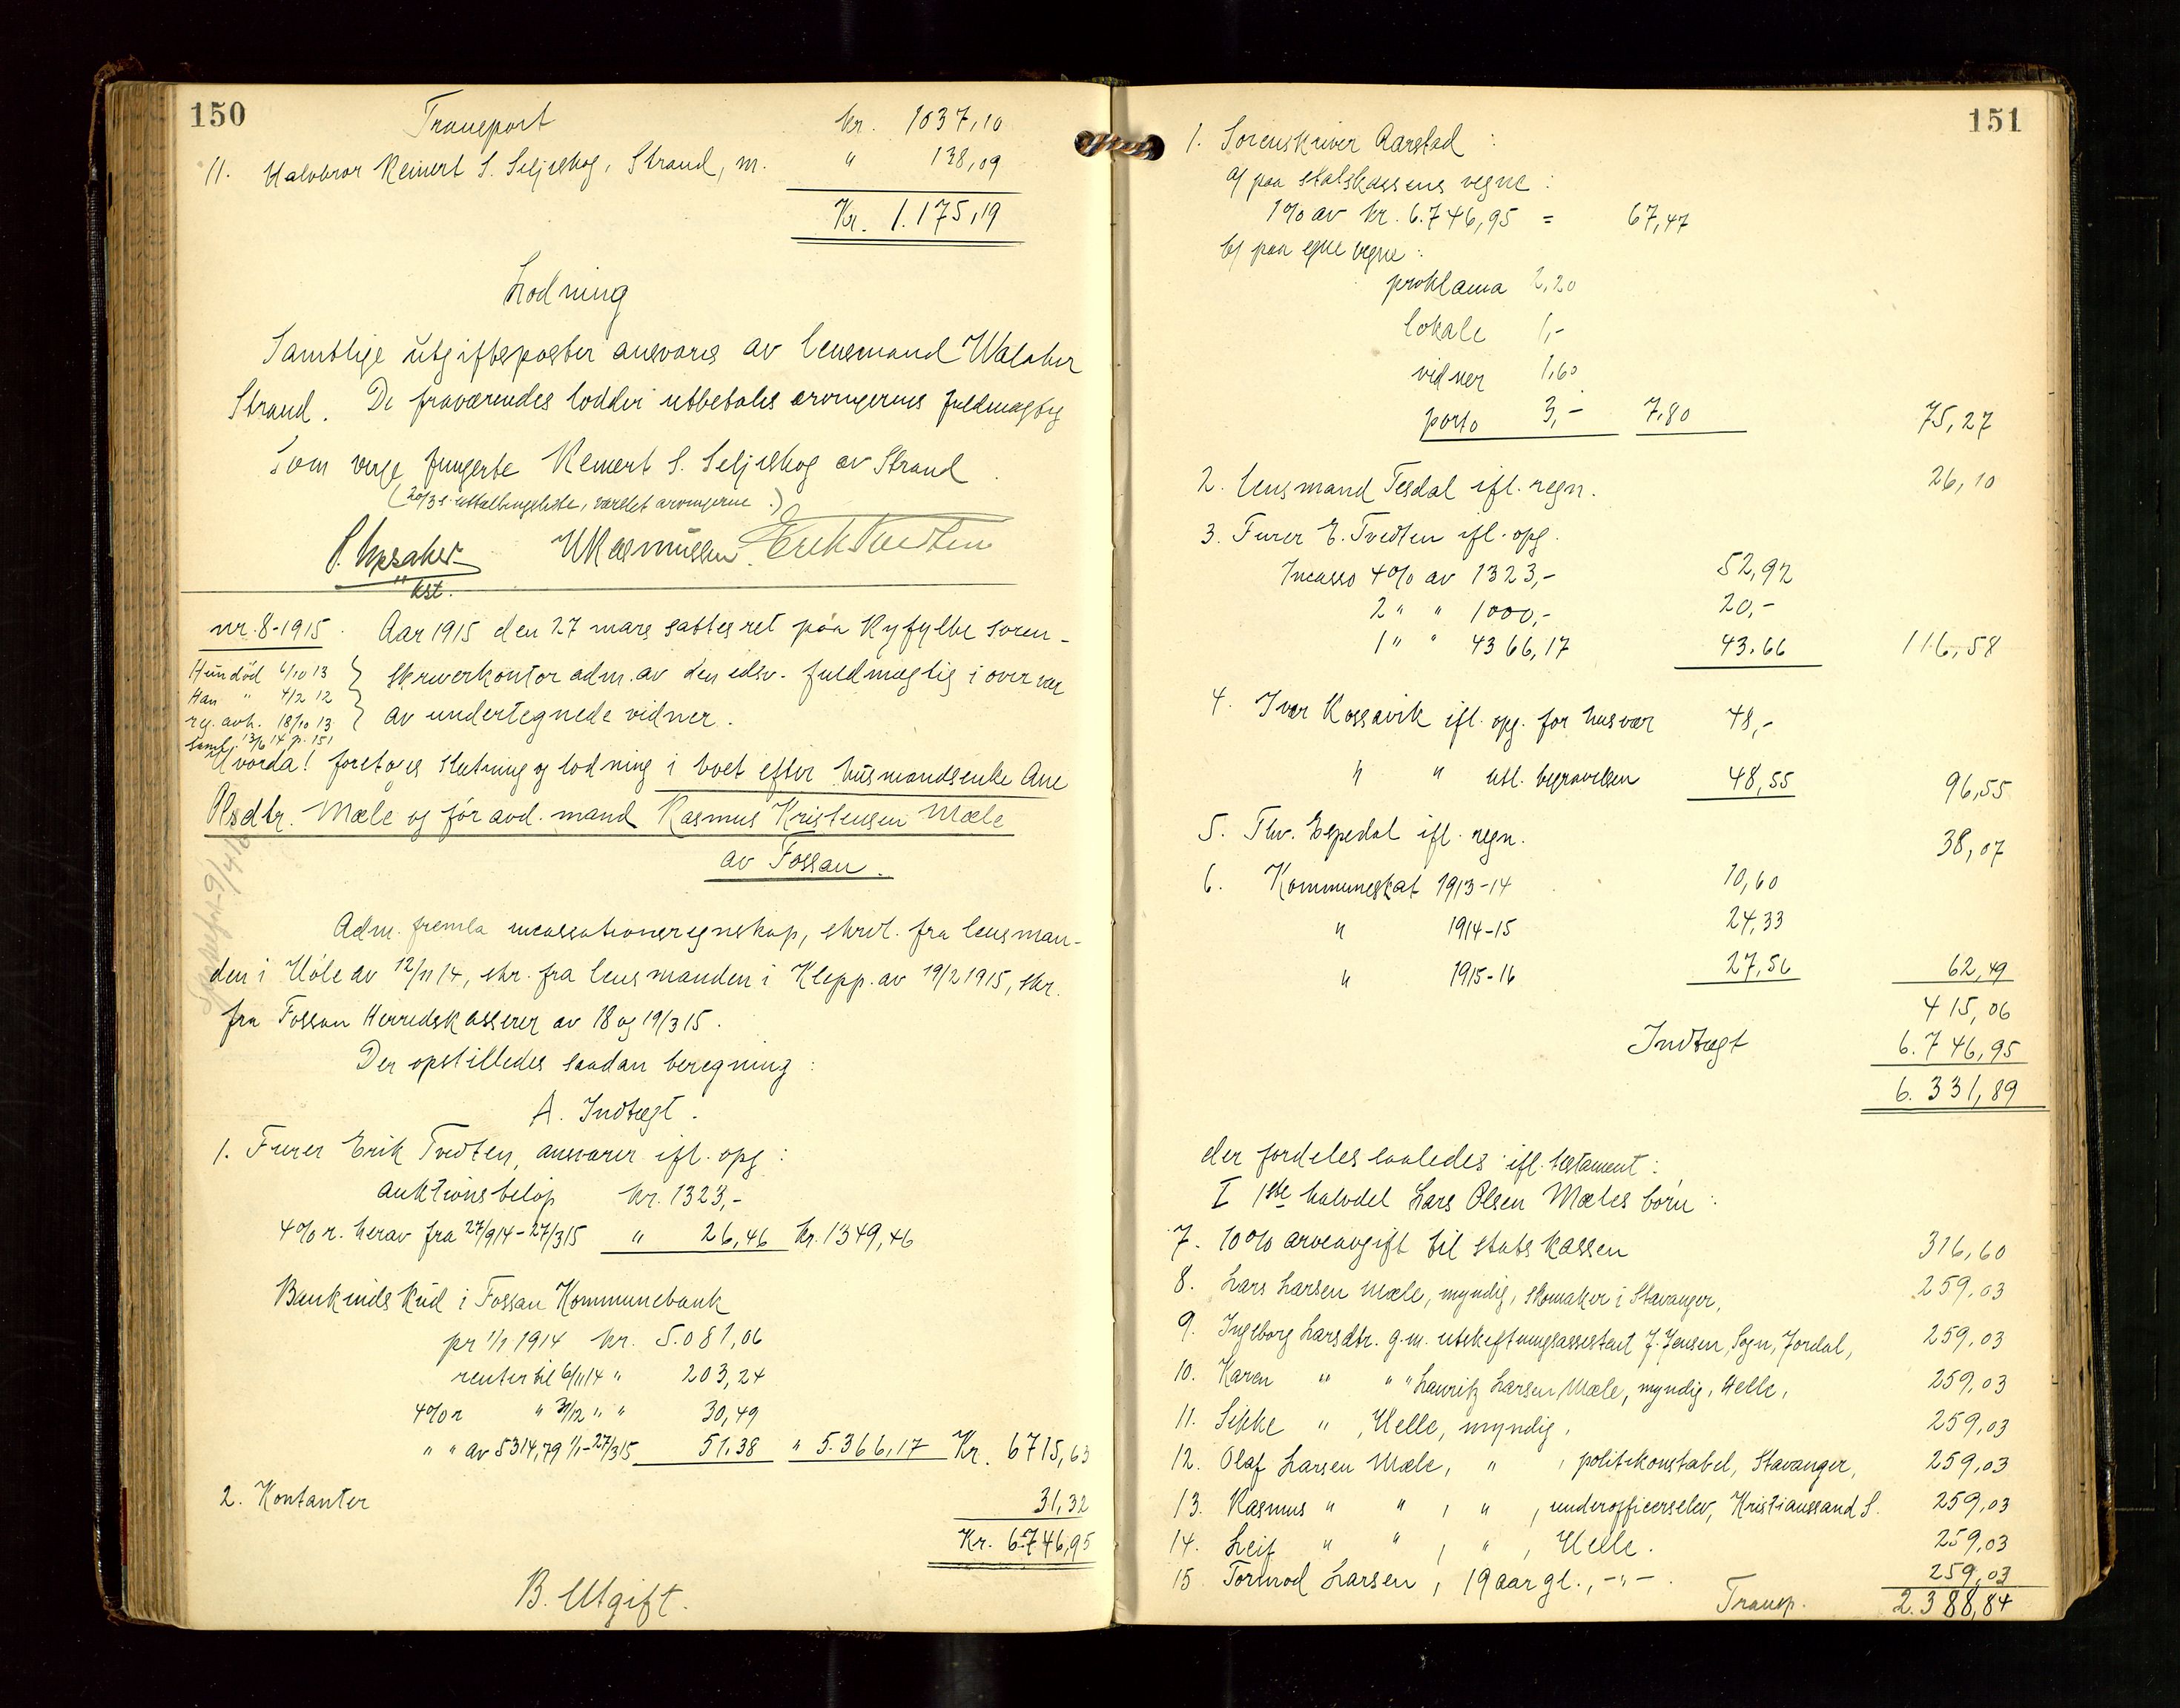 150
Transport Kr. 1037,10
11. Halvbror Reinert S. Seljeskog, Strand, m. " 138,09
Kr. 1.175,19
Lodning
Samtlige utgiftsposter ansvares av lensmand
Strand. De fraværendes lodder utbetales arvingernes fuldmægtig
Som verge fungerte Reinert S. Seljeskog av Strand.
Rasmussen. Erik Tvedten
kst.
nr. 8-1915. Aar 1915 den 27 mars sattes ret paa Ryfylke soren-
Hun död 6/10 13 } skriverkontor adm. av den edsv. fuldmægtig i overvær
Han " 4/2 12
reg. avh. 18/10 13 } av undertegnede vidner.
saml. 13/6 14 p. 151
Hvorda! foretoges slutning og lodning i boet efter husmandsenke Ane
Olsdtr. Mæle og før avd. mand Rasmus Kristensen Mæle
av Fossan.
Adm. fremla incassationsregnskap, skrvl. fra lensman-
den i Höle av 12/11 14, skr. fra lensmanden i Klepp. av 19/2 1915, skr.
fra Fossan Herredskasserer av 18 og 19/3 15.
Der opstilledes saadan beregning:
A. Indtægt.
1. Furer Erik Tvedten, ansvarer ifl. opg:
auktionsbeløp Kr. 1323,-
4% r. herav fra 27/9 14 - 27/3 15 " 26,46 Kr. 1349,46
Bankindskud i Fossan Kommunebank
pr 1/1 1914 Kr. 5.081,06
renter til 6/11 14 " 203,24
4% r " 31/12 " " 30,49
" " av 5314,79 1/1 - 27/3 15 51,38 " 5.366,17 Kr. 6715,63
2. Kontanter 31,32
Kr. 6.746,95
B. Utgift.
151
1. Sorenskriver Aarstad:
a/ paa statskassens vegne:
1% av kr. 6.746,95 = 67,47
b/ paa egne vegne:
proklama 2,20
lokale 1,-
vidner 1,60
porto 3,- 7,80 75,27
2. Lensmand Tesdal ifl. regn. 26,10
3. Furer E. Tvedten ifl. opg.
Incasso 4% av 1323,- 52,92
2 " " 1000,- 20,-
1 " " 4366,17 43,66 116,58
4. Ivar Kossavik ifl. opg. for husvær 48,-
" " utl. begravelsen 48,55 96,55
5. Thv. Espedal ifl. regn. 38,07
6. Kommuneskat 1913-14 10,60
" 1914-15 24,33
" 1915-16 27,56 62,49
415,06
Indtægt 6.746,95
6.331,89
der fordeles saaledes ifl. testament:
I 1ste halvdel Lars Olsen Mæles børn:
7. 10% arveavgift til statskassen 316,60
8. Lars Larsen Mæle, myndig, skomaker i Stavanger, 259,03
9. Ingeborg Larsdtr. g.m. utskiftningsassistent J. Jensen, Sogn, Jordal, 259,03
10. Karen " " " Lauritz Larsen Mæle, myndig, Helle, 259,03
11. Sikke " , Helle, myndig, 259,03
12. Olaf Larsen Mæle, " , politikonstabel, Stavanger, 259,03
13. Rasmus " " , " , underofficerselev, Kristianssand S. 259,03
14. Leif " " , " , Helle. 259,03
15. Tormod Larsen, 19 aar gl., -"- 259,03
Transp. 2.388,84